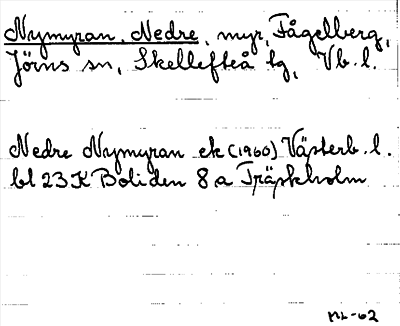 Nymyran, Nedre, myr, Fågelberg,
Jörns sn, Skellefteå tg, Vb. l.
Nedre Nymyran ek (1960) Västerb. l.
bl 23 K Boliden 8 a Träskholm